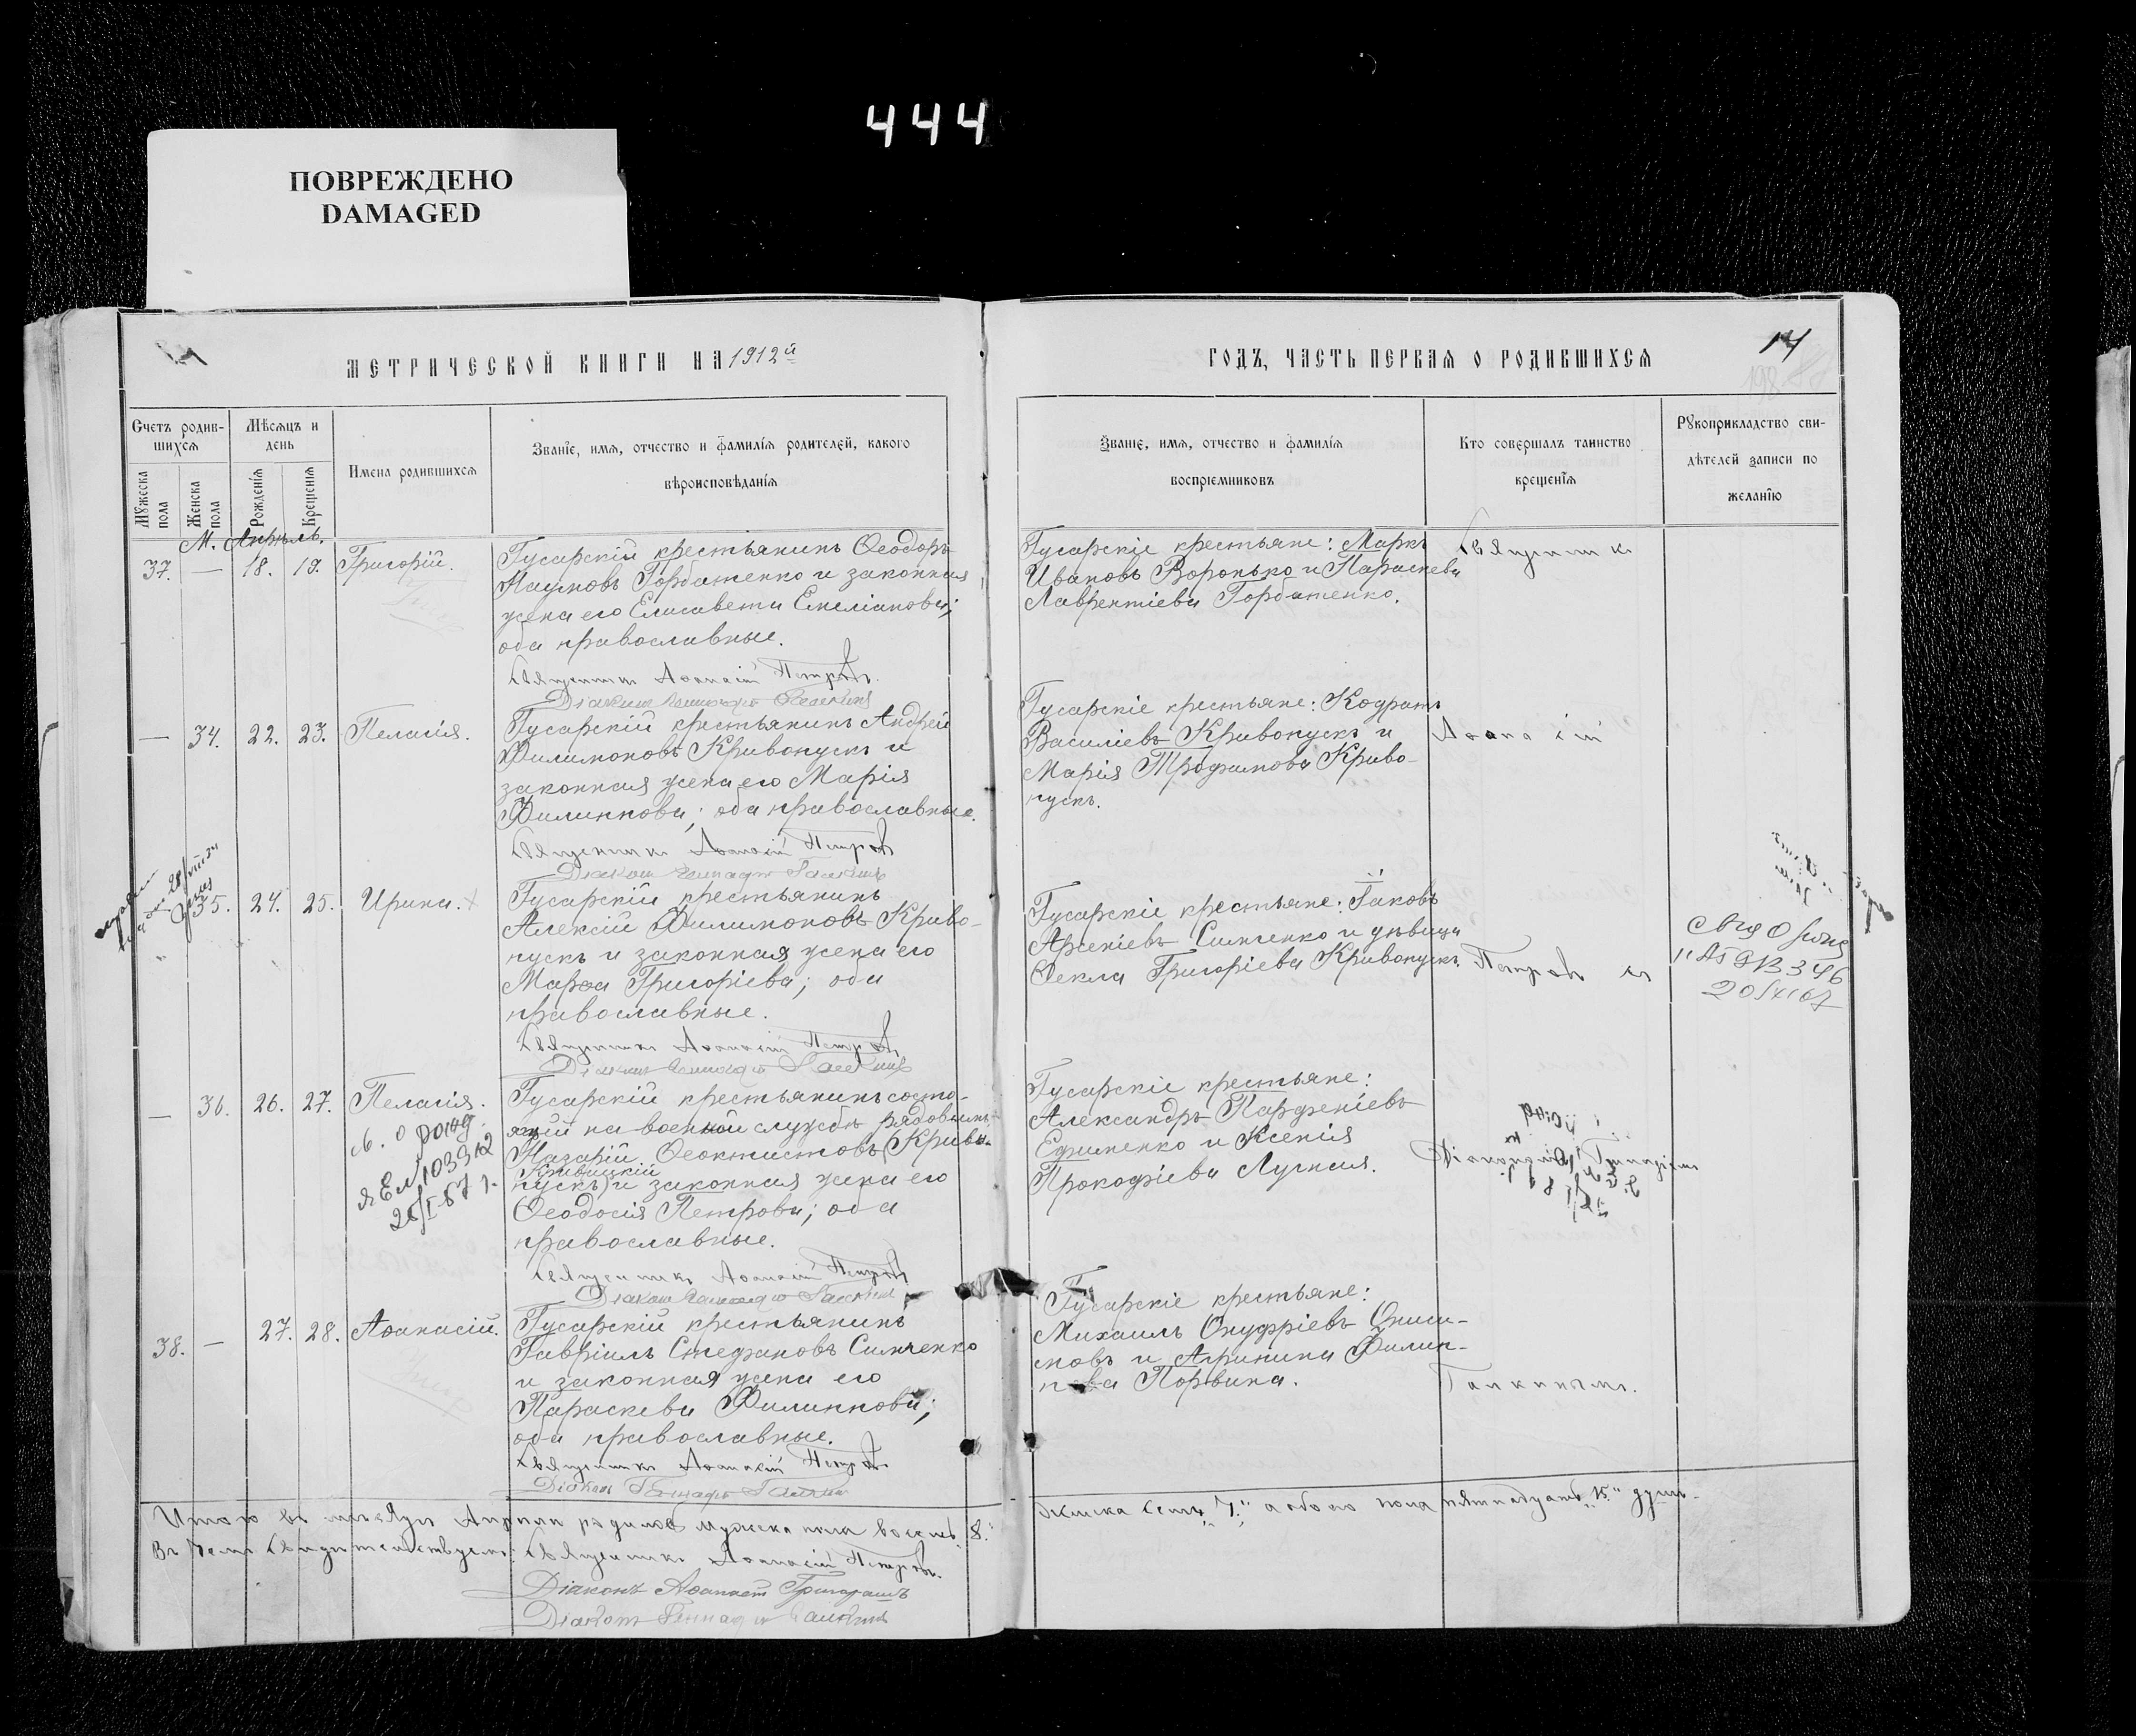 444
ПОВРЕЖДЕНО
DAMAGED
МЕТРИЧЕСКОЙ КНИГИ НА 1912й
ГОДЪ, ЧАСТЬ ПЕРВАЯ О РОДИВШИХСЯ
14
198
Счетъ родив-
шихся
Мѣсяцъ и
день
Мужеска
пола
Женска
пола
Рожденія
Крещенія
Имена родившихся
Званіе, имя, отчество и фамилія родителей, какого
вѣроисповѣданія
Званіе, имя, отчество и фамилія
воспріемниковъ
Кто совершалъ таинство
крещенія
Рукоприкладство сви-
дѣтелей записи по
желанію
М. Апрѣль.
37. — 18. 19. Григорій.
Гусарскій крестьянинъ Ѳеодоръ
Наумовъ Горбатенко и законная
жена его Елисавета Емеліанова;
оба православные.
Священникъ Аѳанасій Петровъ.
Діаконъ Геннадій Галкинъ
Гусарскіе крестьяне: Маркъ
Ивановъ Воронько и Параскева
Лаврентіева Горбатенко.
Священникъ
— 34. 22. 23. Пелагія.
Гусарскій крестьянинъ Андрей
Филимоновъ Кривопускъ и
законная жена его Марія
Филиппова; оба православные.
Священникъ Аѳанасій Петровъ
Діаконъ Геннадій Галкинъ
Гусарскіе крестьяне: Кодратъ
Василіевъ Кривопускъ и
Марія Трофимова Криво-
пускъ.
Аѳанасій
— 35. 24. 25. Ирина.
Гусарскій крестьянинъ
Алексій Филимоновъ Криво-
пускъ и законная жена его
Марѳа Григоріева; оба
православные.
Священникъ Аѳанасій Петровъ
Діаконъ Геннадій Галкинъ
Гусарскіе крестьяне: Іаковъ
Арсеніевъ Симченко и дѣвица
Ѳекла Григоріева Кривопускъ.
Петровъ съ
20/XI 67
— 36. 26. 27. Пелагія.
св. о рожд.
я ЕЛ 103312
26/I-67 г.
Гусарскій крестьянинъ состо-
ящій на военной службѣ рядовымъ
Назарій Ѳеоктистовъ (Криво-
Кривицкій
пускъ) и законная жена его
Ѳеодосія Петрова; оба
православные.
Священникъ Аѳанасій Петровъ
Діаконъ Геннадій Галкинъ
Гусарскіе крестьяне:
Александръ Парфеніевъ
Ефименко и Ксенія
Прокофіева Лугная.
Діакономъ Геннадіемъ
38. — 27. 28. Аѳанасій.
Гусарскій крестьянинъ
Гавріилъ Стефановъ Симченко
и законная жена его
Параскева Филиппова;
оба православные.
Священникъ Аѳанасій Петровъ
Діаконъ Геннадій Галкинъ
Гусарскіе крестьяне:
Михаилъ Онуфріевъ Ониси-
мовъ и Агрипина Филип-
пова Порвина.
Галкинымъ.
Итого въ мѣсяцѣ Апрѣлѣ родилось мужеска пола восемь „8.“
женска семь „7.“ а обоего пола пятнадцать „15.“ душъ.
Въ чемъ свидѣтельствуемъ: Священникъ Аѳанасій Петровъ.
Діаконъ Аѳанасій Григорашъ
Діаконъ Геннадій Галкинъ